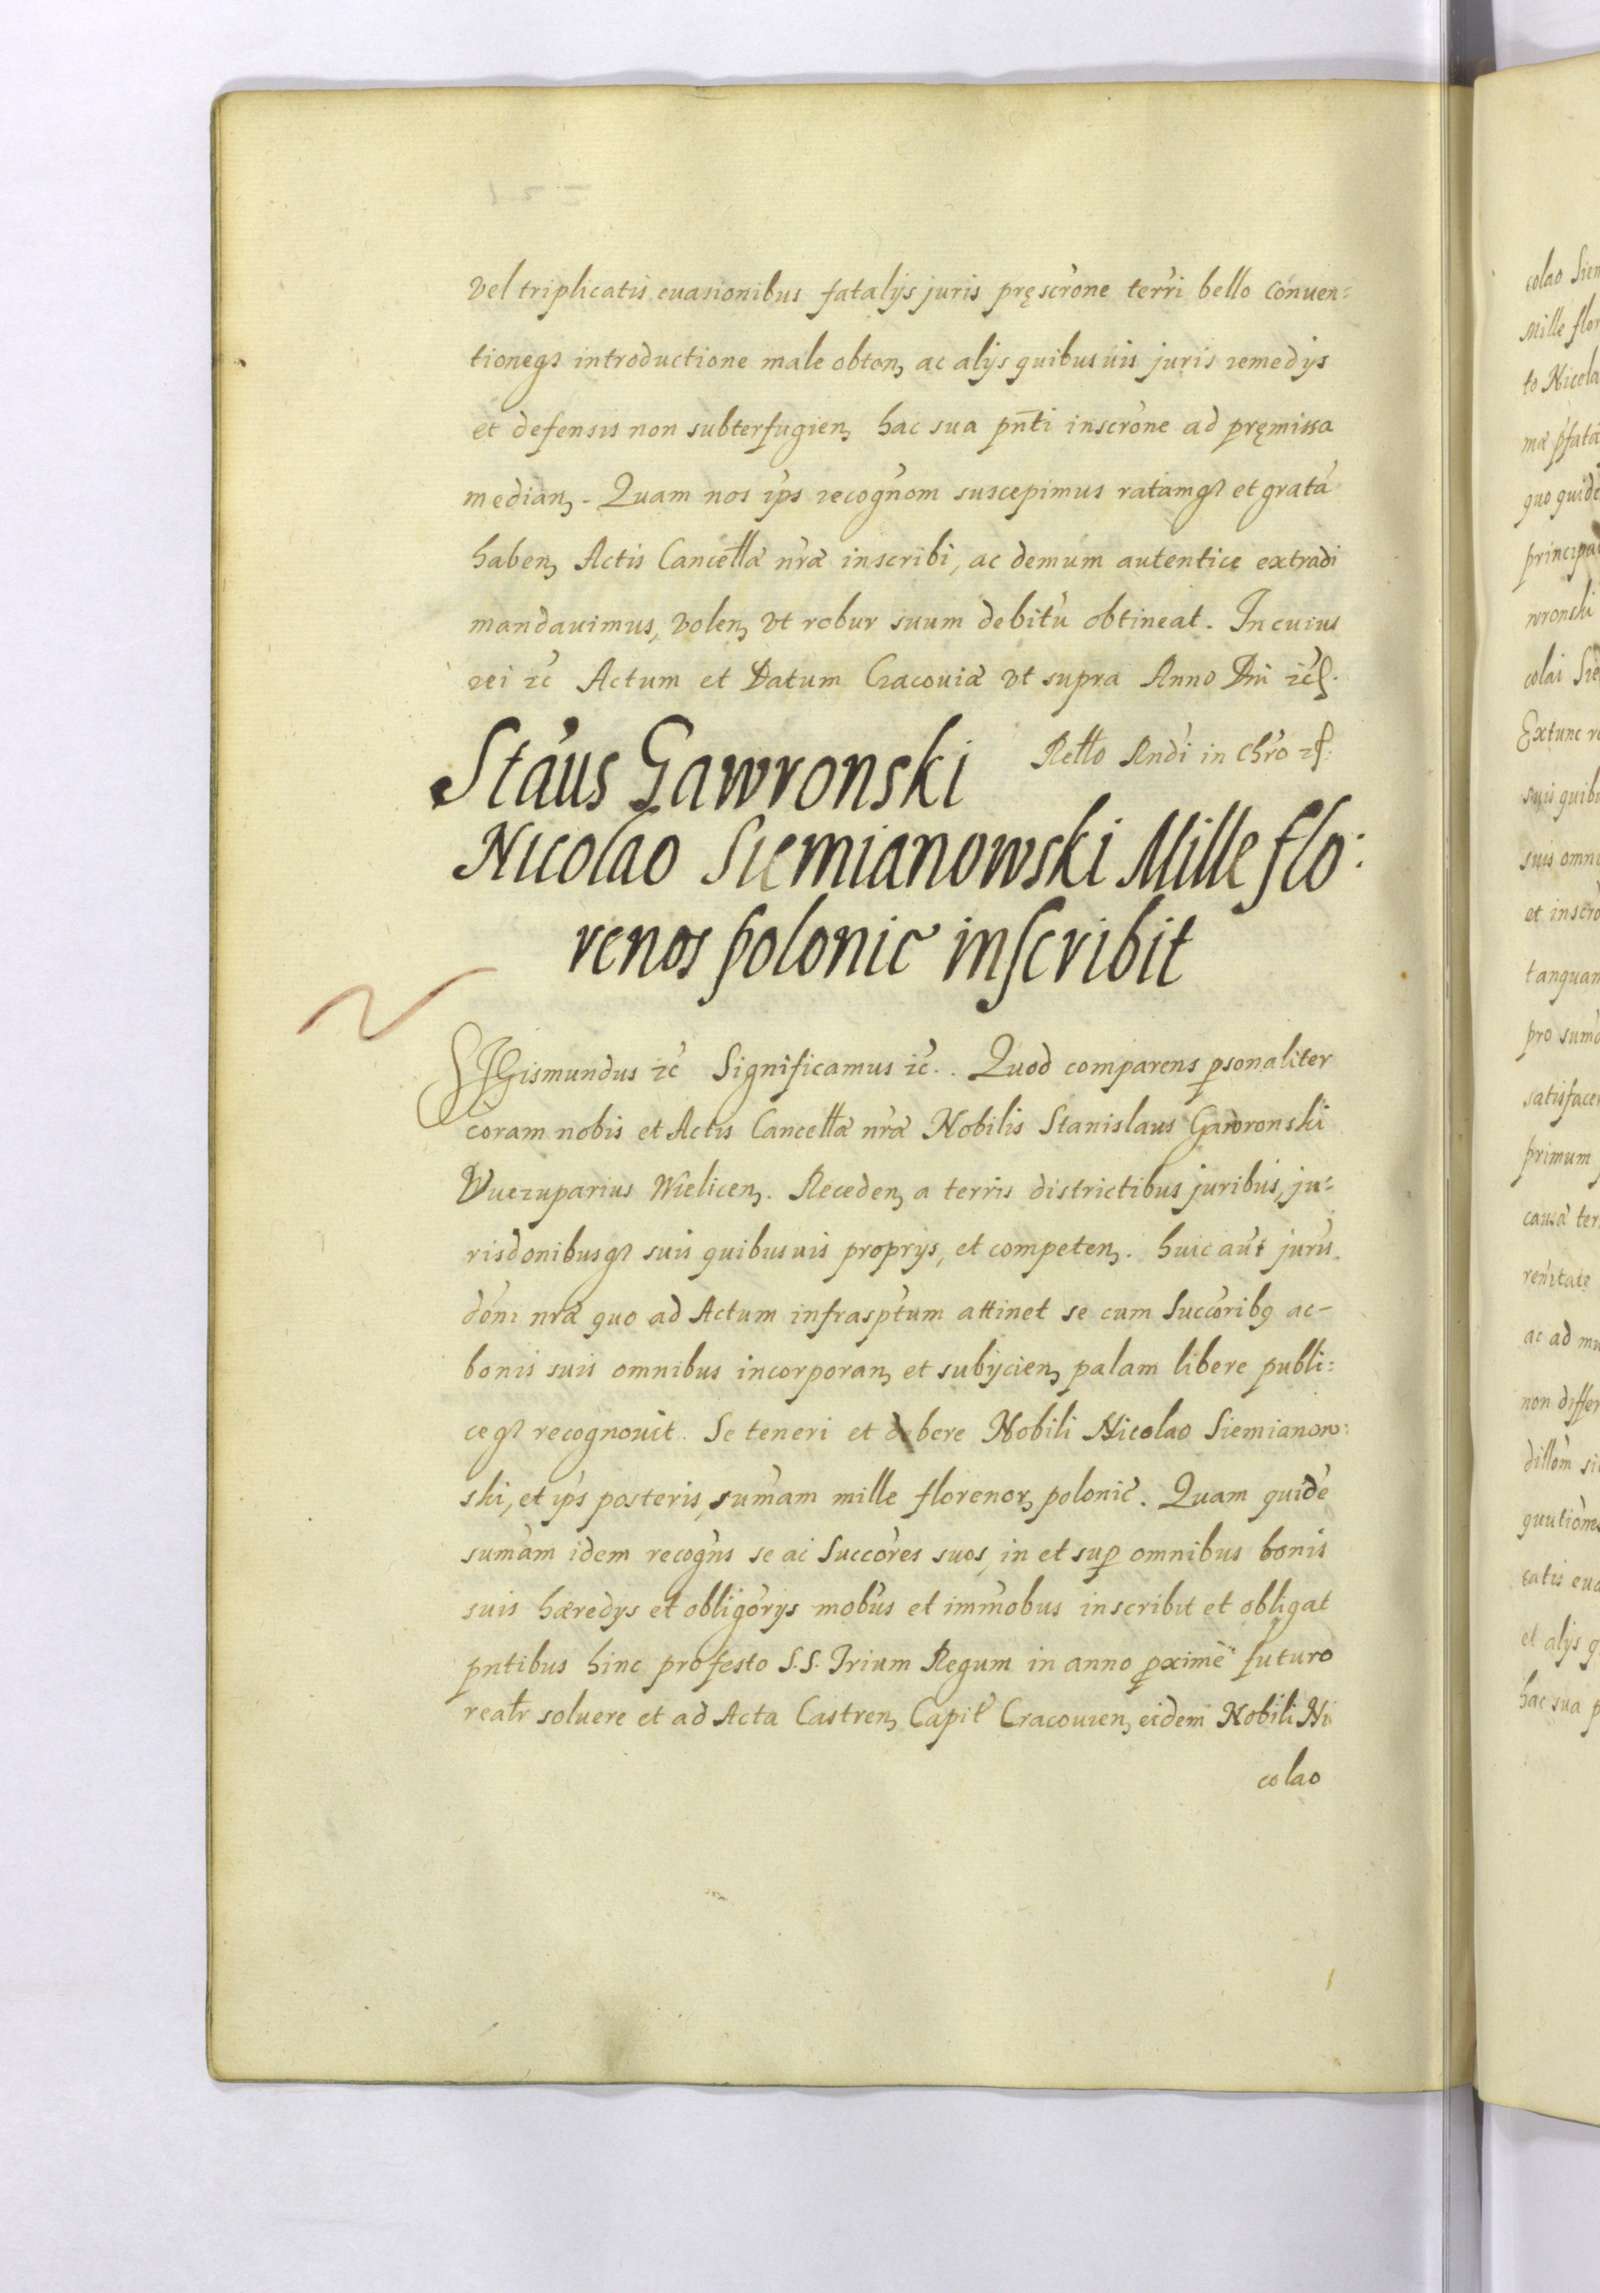 vel triplicatis euasionibus fatalijs juris pręscr̃one terr̃i bello conuen:
tioneq3 introductione male obten3 ac alijs quibusuis juris remedijs
et defensis non subterfugien3 hac sua pñti inscr̃one ad pręmissa
median3. Quam nos ip̃s recogñom suscepimus ratamq3 et gratã
haben3 Actis Cancelłæ ñræ inscribi, ac demum autentice extradi
mandauimus, volen3 vt robur suum debitũ obtineat. In cuius
rei zc̃ Actum et Datum Cracouiæ vt supra Anno Dñi zc̃
Relło Rnd̃i in Chr̃o
Stãus Gawronski
Nicolao Siemianowski Mille flo:
renos polonic̃ inscribit
SIGismundus zc̃ Significamus zc̃. Quod comparens psonaliter
coram nobis et Actis Cancelłæ ñræ Nobilis Stanislaus Gawronski
Vuezuparius Wielicen3. Receden3 a terris districtibus juribus, ju:
risdonibusq3 suis quibusuis proprijs, et competen3. huic aũt juris
dõni ñræ quo ad Actum infrasp̃tum attinet se cum Succõrib9 ac
bonis suis omnibus incorporan3 et subijcien3 palam libere publi:
ceq3 recognouit. Se teneri et debere Nobili Nicolao Siemianow:
ski, et ip̃s posteris, sum̃am mille florenor3 polonic̃. Quam quidẽ
sum̃am idem recogñs se ac Succõres suos, in et sup omnibus bonis
suis hæredijs et obligõrijs mobũs et imm̃obus inscribit et obligat
pñtibus hinc pro festo S.S. Trium Regum in anno pximẽ futuro
realr̃ soluere et ad Acta Castren3 Capił Cracouien3 eidem Nobili Ni
colao
colao Siem
Mille flor
to Nicola
mã pfatã
quo quidẽ
principa
wronski
colai Sie
Extunc
suis quibu
suis omni
et inscrõ
tanquam
pro sum̃a
satisface
primum
causã ter
ac ad
non differ
catis eua
et alijs q
hac sua p